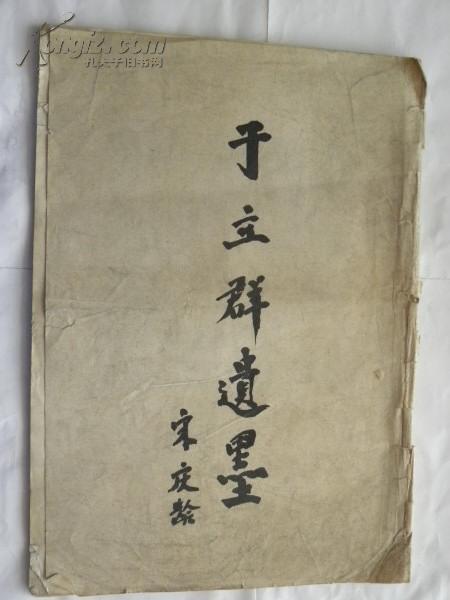 Kongfz.com
孔夫子旧书网
于立群遺墨
宋庆龄